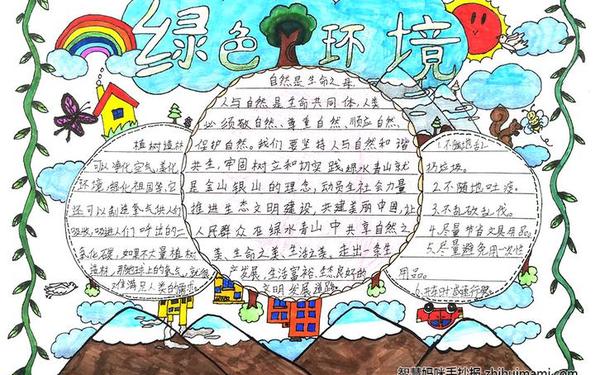 绿色环境
自然是生命之母,
人与自然是生命共同体,人类
必须敬自然、尊重自然、顺应自然、
保护自然。我们要坚持人与自然和谐
共生,牢固树立和切实践绿水青山就
是金山银山的理念,动员全社会力量
推进生态文明建设,共建美丽中国,让
人民群众在绿水青山中共享自然之
美、生命之美、生活之美,走出一条生
产发展、生活富裕、生态良好的
文明发展道路。
植树造林
可以净化空气,美化
环境,绿化祖国等,它
还可以制造氧气供人们
吸收,吸进人们呼出的二
氧化碳,如果不大量植树
造林,那地球上的氧气,就很
难满足人类的需求。
1.不随地乱
扔垃圾。
2.不随地吐痰。
3.不乱砍乱伐。
4.尽量节省文具用品。
5.尽量避免用一次性
用品。
智慧妈咪手抄报 zhihuimami.com